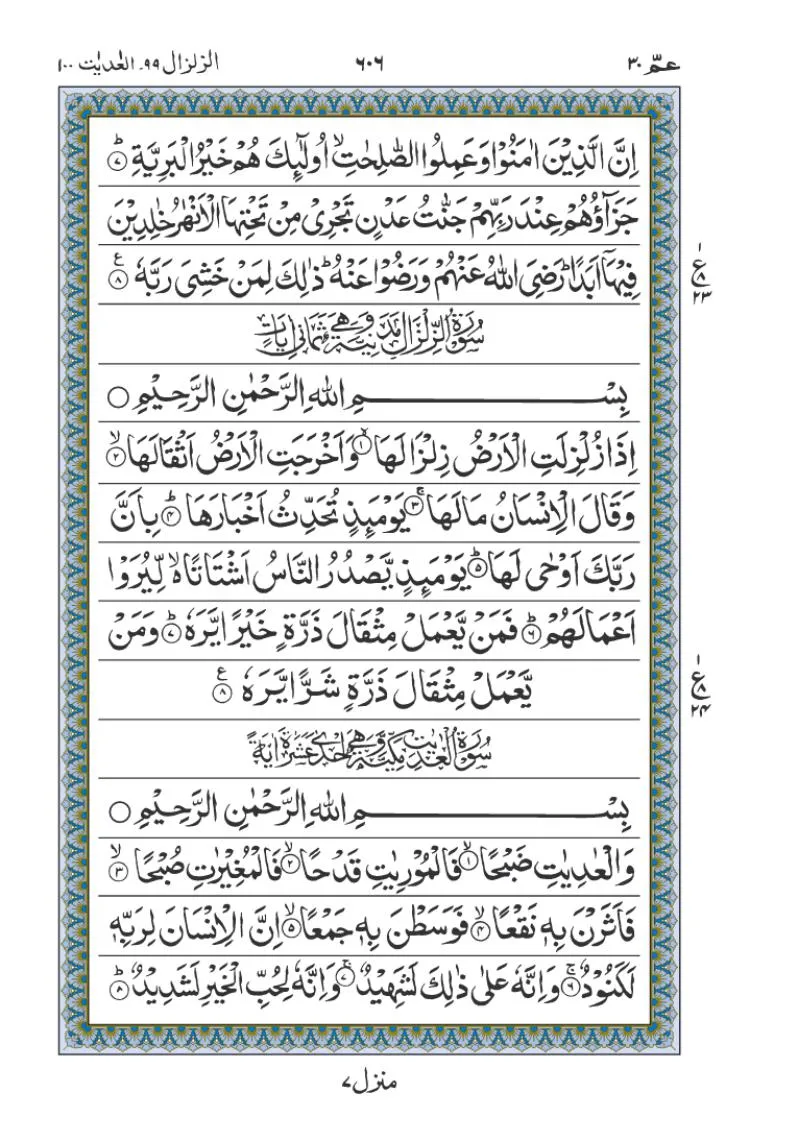 عمّ ٣٠ ٦٠٦ الزلزال ٩٩۔ العٰديٰت ١٠٠
اِنَّ الَّذِيْنَ اٰمَنُوْا وَعَمِلُوا الصّٰلِحٰتِ ۙ اُولٰٓئِكَ هُمْ خَيْرُ الْبَرِيَّةِ ؕ ﴿٧﴾
جَزَآؤُهُمْ عِنْدَ رَبِّهِمْ جَنّٰتُ عَدْنٍ تَجْرِيْ مِنْ تَحْتِهَا الْاَنْهٰرُ خٰلِدِيْنَ
فِيْهَاۤ اَبَدًا ؕ رَضِيَ اللّٰهُ عَنْهُمْ وَرَضُوْا عَنْهُ ؕ ذٰلِكَ لِمَنْ خَشِيَ رَبَّهٗ ﴿٨﴾ ع
١ ع ٨ ٢٣
سُوْرَةُ الزِّلْزَالِ مَدَنِيَّةٌ وَّهِيَ ثَمَانِيْ اٰيَاتٍ
بِسْمِ اللّٰهِ الرَّحْمٰنِ الرَّحِيْمِ ○
اِذَا زُلْزِلَتِ الْاَرْضُ زِلْزَالَهَا ۙ ﴿١﴾ وَاَخْرَجَتِ الْاَرْضُ اَثْقَالَهَا ۙ ﴿٢﴾
وَقَالَ الْاِنْسَانُ مَا لَهَا ۚ ﴿٣﴾ يَوْمَئِذٍ تُحَدِّثُ اَخْبَارَهَا ؕ ﴿٤﴾ بِاَنَّ
رَبَّكَ اَوْحٰى لَهَا ؕ ﴿٥﴾ يَوْمَئِذٍ يَّصْدُرُ النَّاسُ اَشْتَاتًا ۙ۬ لِّيُرَوْا
اَعْمَالَهُمْ ؕ ﴿٦﴾ فَمَنْ يَّعْمَلْ مِثْقَالَ ذَرَّةٍ خَيْرًا يَّرَهٗ ؕ ﴿٧﴾ وَمَنْ
يَّعْمَلْ مِثْقَالَ ذَرَّةٍ شَرًّا يَّرَهٗ ﴿٨﴾ ع
١ ع ٨ ٢٤
سُوْرَةُ الْعٰدِيٰتِ مَكِّيَّةٌ وَّهِيَ اِحْدٰى عَشَرَةَ اٰيَةً
بِسْمِ اللّٰهِ الرَّحْمٰنِ الرَّحِيْمِ ○
وَالْعٰدِيٰتِ ضَبْحًا ۙ ﴿١﴾ فَالْمُوْرِيٰتِ قَدْحًا ۙ ﴿٢﴾ فَالْمُغِيْرٰتِ صُبْحًا ۙ ﴿٣﴾
فَاَثَرْنَ بِهٖ نَقْعًا ۙ ﴿٤﴾ فَوَسَطْنَ بِهٖ جَمْعًا ۙ ﴿٥﴾ اِنَّ الْاِنْسَانَ لِرَبِّهٖ
لَكَنُوْدٌ ۚ ﴿٦﴾ وَاِنَّهٗ عَلٰى ذٰلِكَ لَشَهِيْدٌ ۚ ﴿٧﴾ وَاِنَّهٗ لِحُبِّ الْخَيْرِ لَشَدِيْدٌ ؕ ﴿٨﴾
منزل ٧